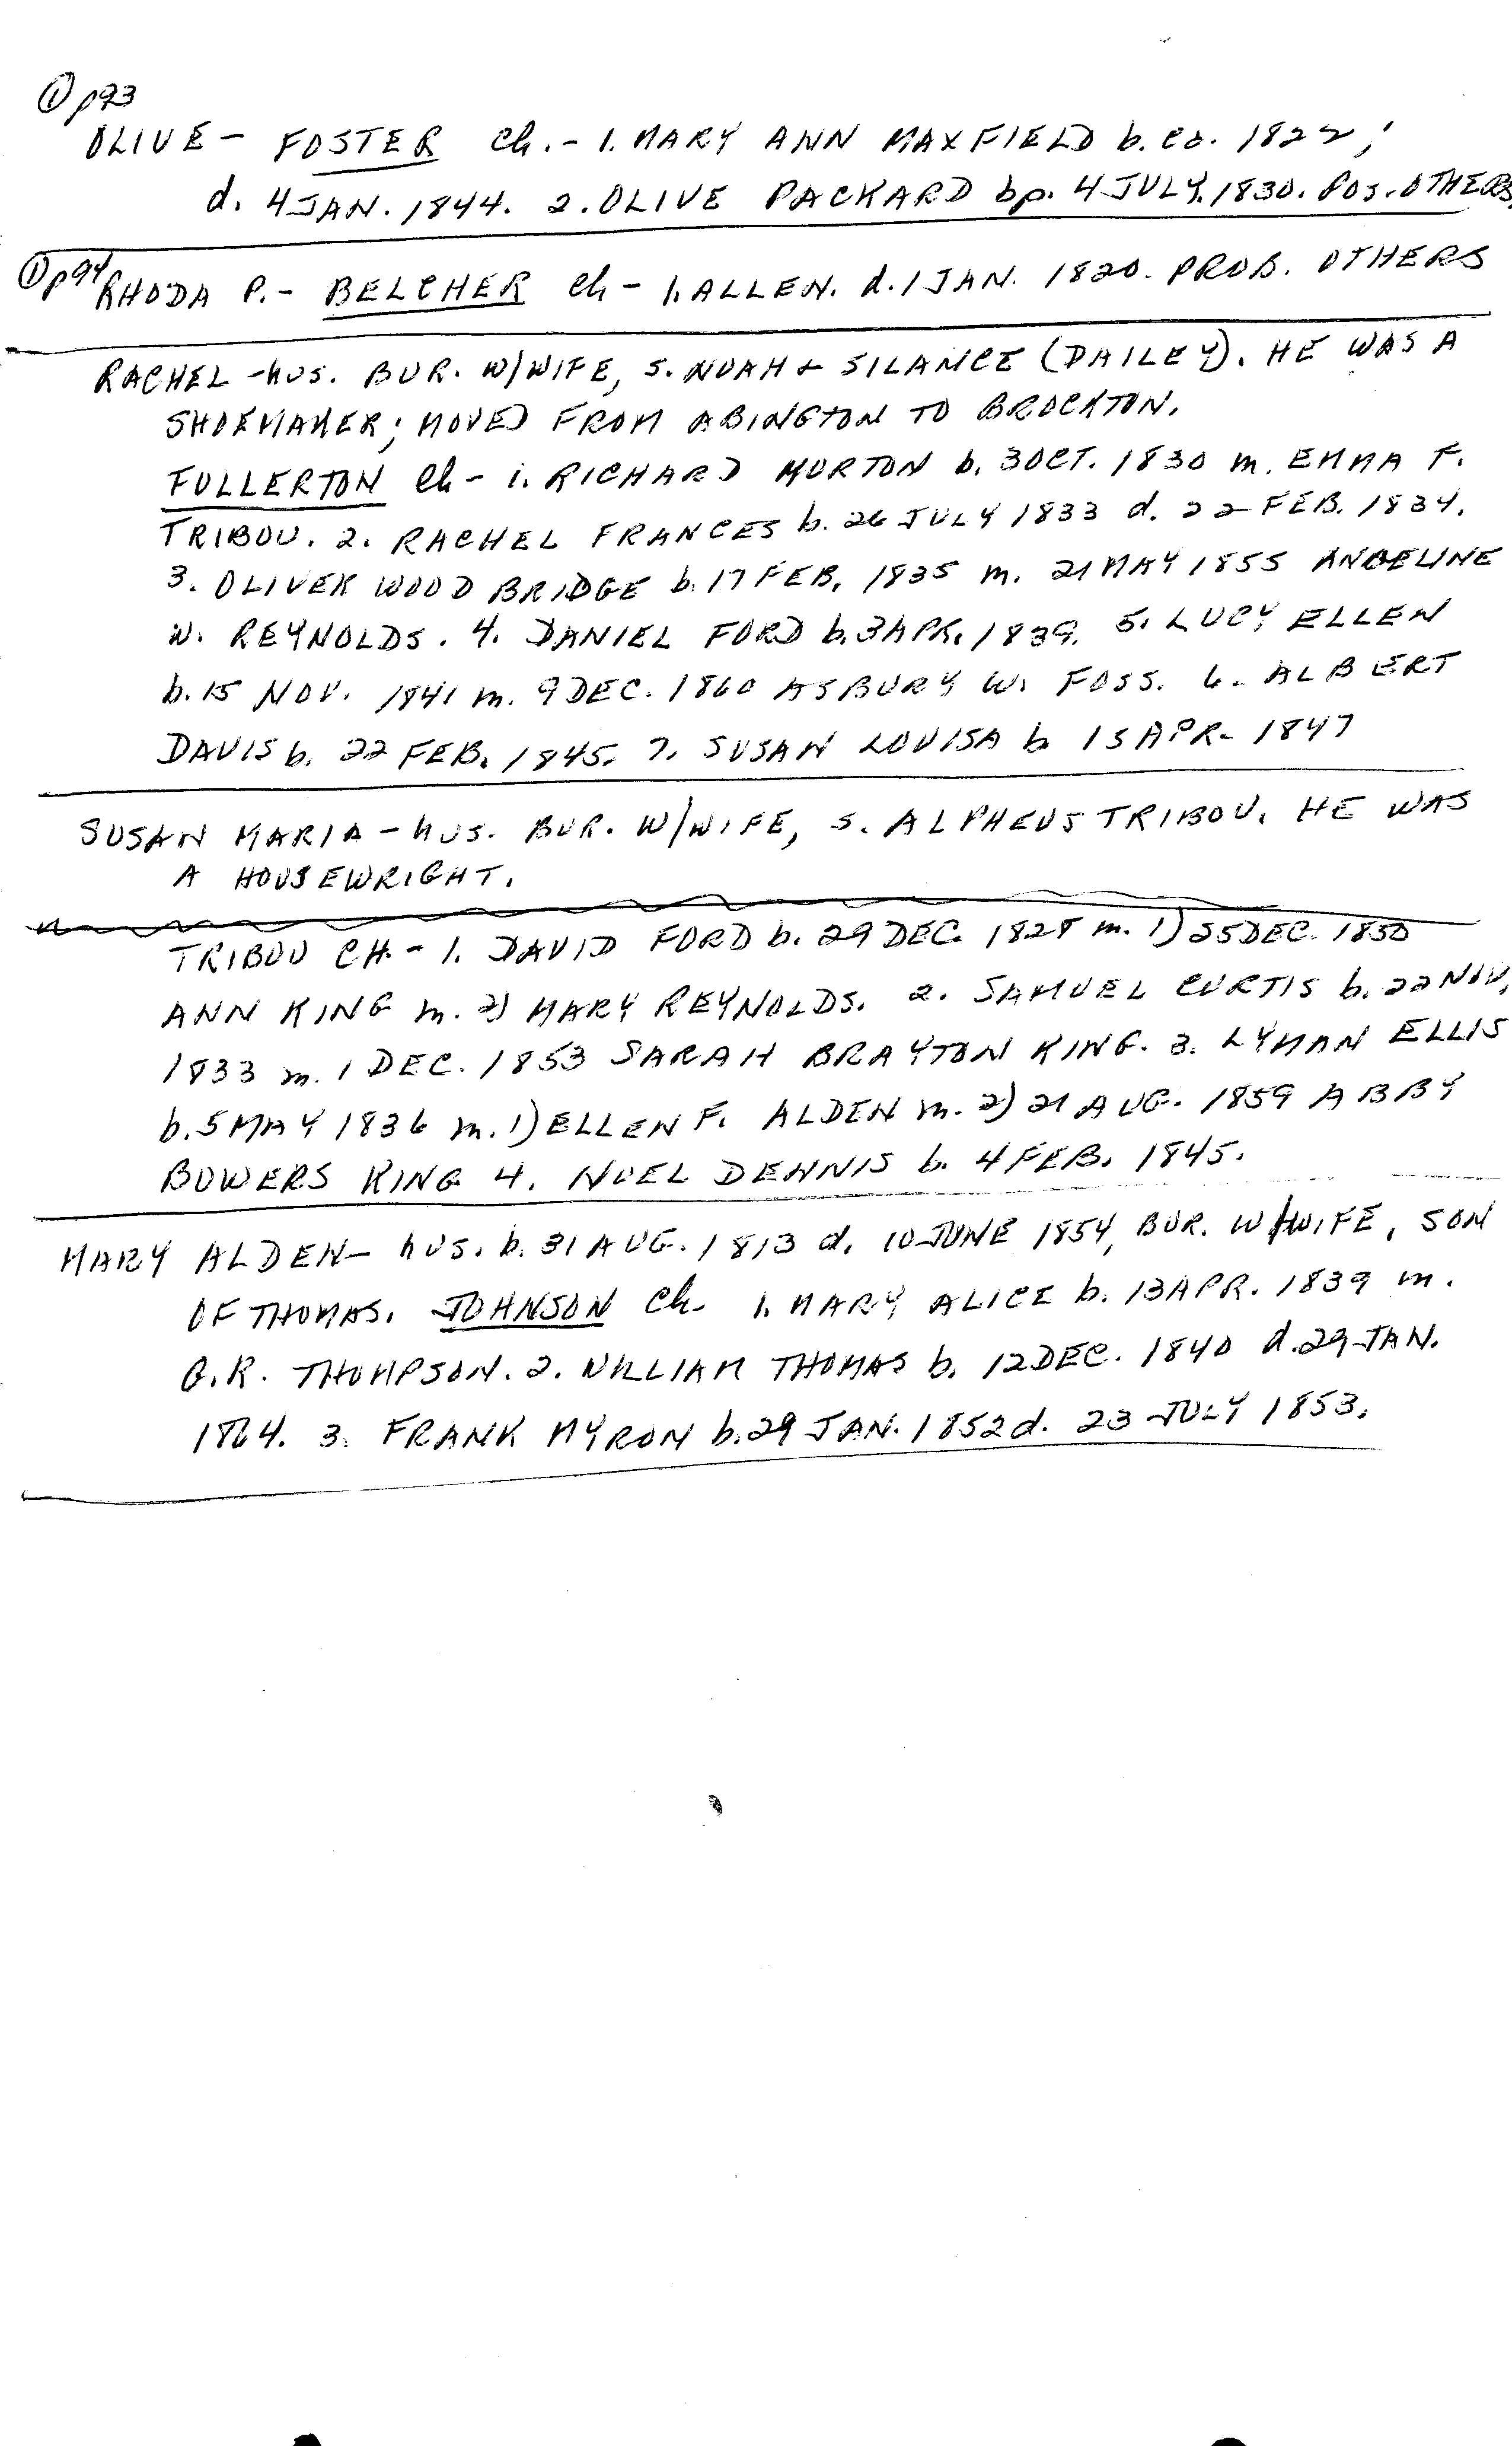 ① p93
OLIVE - FOSTER Ch. - 1. MARY ANN MAXFIELD b. ca. 1822;
d. 4 JAN. 1844. 2. OLIVE PACKARD bp. 4 JULY, 1830. POS. OTHERS
① p94 RHODA P. - BELCHER Ch - 1. ALLEN. d. 1 JAN. 1820. PROB. OTHERS
RACHEL - hus. BUR. W/WIFE, S. NOAH & SILANCE (DAILEY). HE WAS A
SHOEMAKER; MOVED FROM ABINGTON TO BROCKTON.
FULLERTON Ch - 1. RICHARD MORTON b. 3 OCT. 1830 m. EMMA F.
TRIBOU. 2. RACHEL FRANCES b. 26 JULY 1833 d. 22 FEB. 1834.
3. OLIVER WOODBRIDGE b. 17 FEB. 1835 m. 21 MAY 1855 ANGELINE
W. REYNOLDS. 4. DANIEL FORD b. 3 APR. 1839. 5. LUCY ELLEN
b. 15 NOV. 1841 m. 9 DEC. 1860 ASBURY W. FOSS. 6. ALBERT
DAVIS b. 22 FEB. 1845. 7. SUSAN LOUISA b 15 APR. 1847
SUSAN MARIA - hus. BUR. W/WIFE, S. ALPHEUS TRIBOU. HE WAS
A HOUSEWRIGHT.
TRIBOU CH. - 1. DAVID FORD b. 29 DEC. 1828 m. 1) 25 DEC. 1850
ANN KING m. 2) MARY REYNOLDS. 2. SAMUEL CURTIS b. 22 NOV,
1833 m. 1 DEC. 1853 SARAH BRAYTON KING. 3. LYMAN ELLIS
b. 5 MAY 1836 m. 1) ELLEN F. ALDEN m. 2) 21 AUG. 1859 ABBY
BOWERS KING 4. NOEL DENNIS b. 4 FEB. 1845.
MARY ALDEN - hus. b. 31 AUG. 1813 d. 10 JUNE 1854, BUR. W/WIFE, SON
OF THOMAS. JOHNSON Ch. 1. MARY ALICE b. 13 APR. 1839 m.
G.R. THOMPSON. 2. WILLIAM THOMAS b. 12 DEC. 1840 d. 29 JAN.
1864. 3. FRANK MYRON b. 29 JAN. 1852 d. 23 JULY 1853.